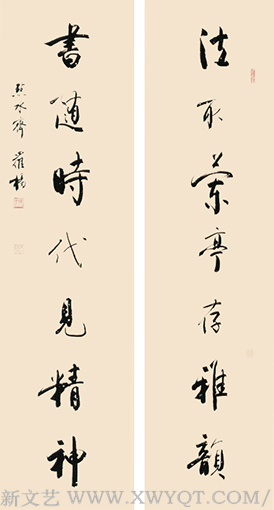 法取蘭亭存雅韻
書随時代見精神
點水齋 羅楊
新文艺 WWW.XWYQT.COM